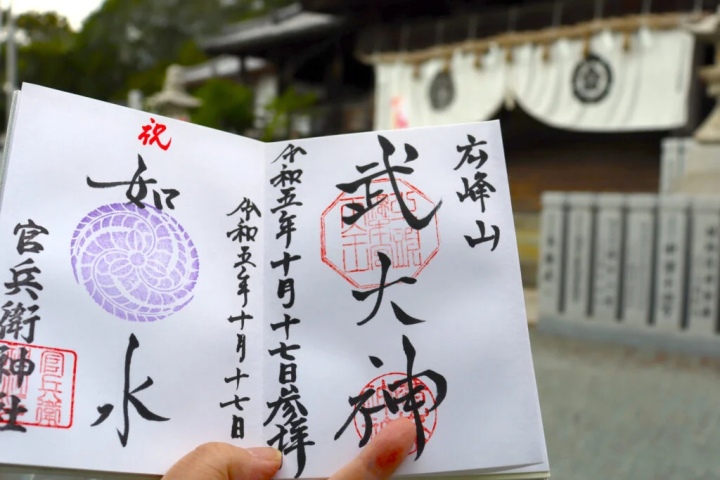 広峰山
武大神
令和五年十月十七日参拝
令和五年十月十七日
祝
如水
官兵衛神社
官兵衛